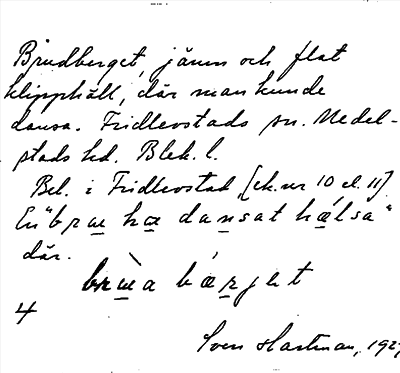 Brudberget, jämn och flat
klipphäll, där man kunde
dansa. Fridlevstads sn. Medel-
stads hd. Blek. l.
Bel. i Fridlevstad [ek. nr 10 el. 11]
En "brɯ ha dansat hælsa"
där.
brɯ̀a bærjet
4
Sven Hartman, 192